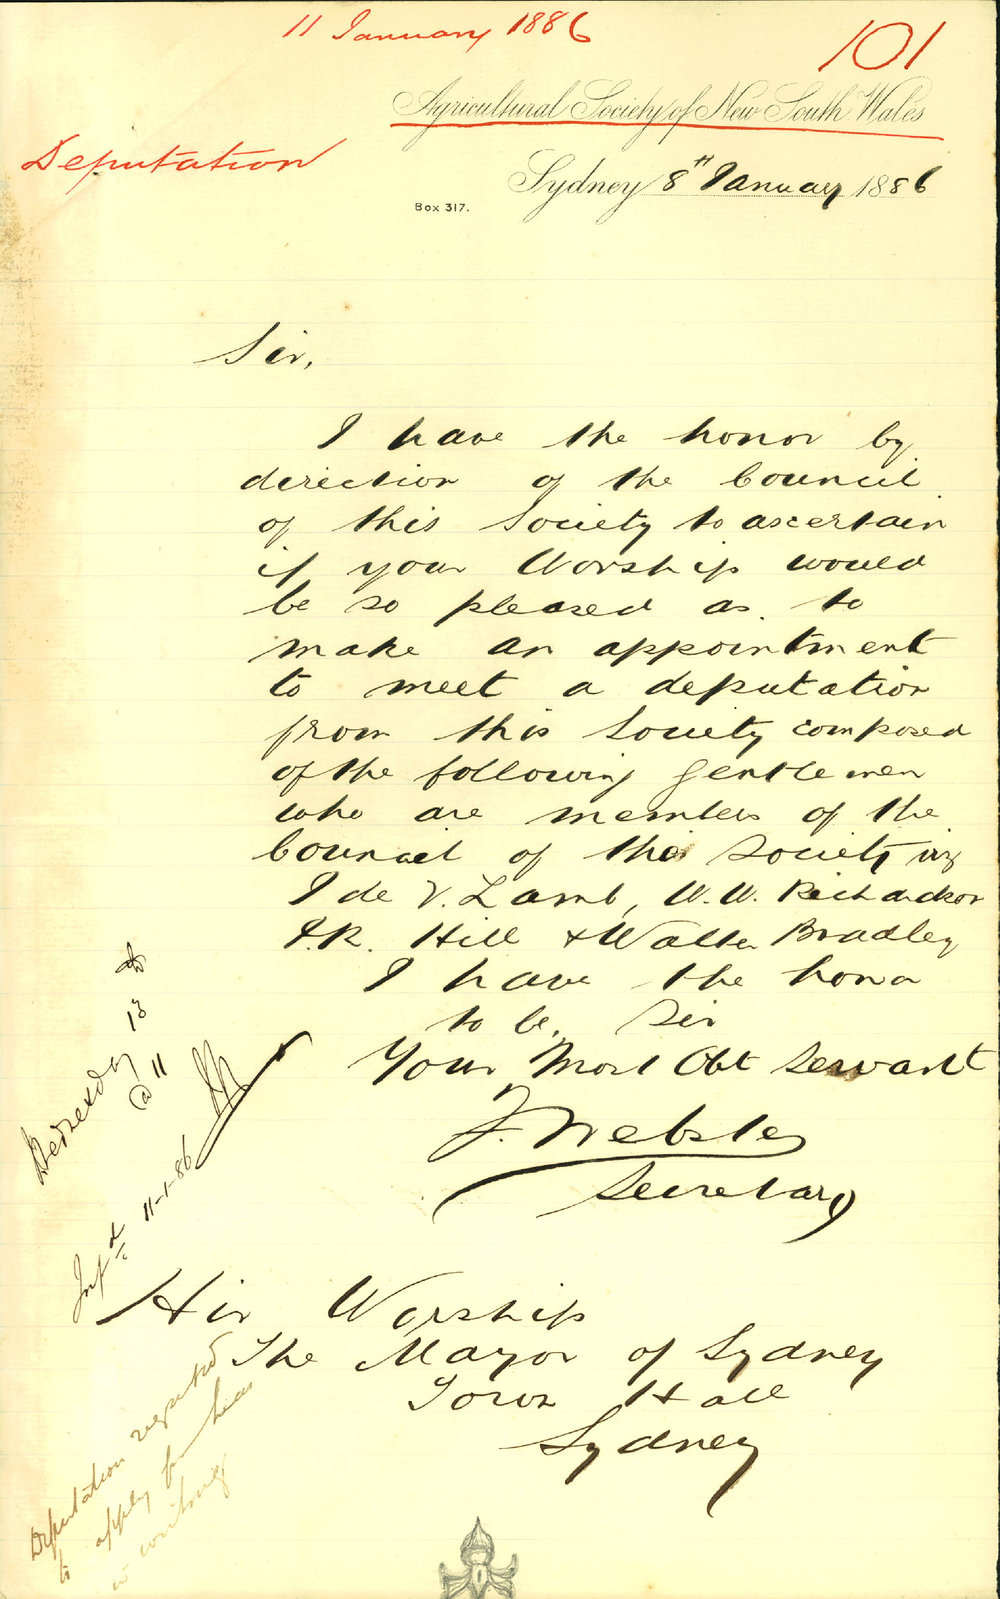 11 January 1886
101
Agricultural Society of New South Wales
Deputation
Sydney 8th January 1886
Box 317.
Sir,
I have the honor by
direction of the Council
of this Society to ascertain
if your Worship would
be so pleased as to
make an appointment
to meet a deputation
from this Society composed
of the following Gentlemen
who are members of the
Council of the Society viz
I de V. Lamb, W.W. Richardson
J.R. Hill & Walter Bradley
I have the honor
to be, Sir
Your Most Obt Servant
F. Webster
Secretary
Wednesday 13
@ 11
Infd 11-1-86
His Worship
The Mayor of Sydney
Town Hall
Sydney
Deputation requested
to apply for lease
in writing